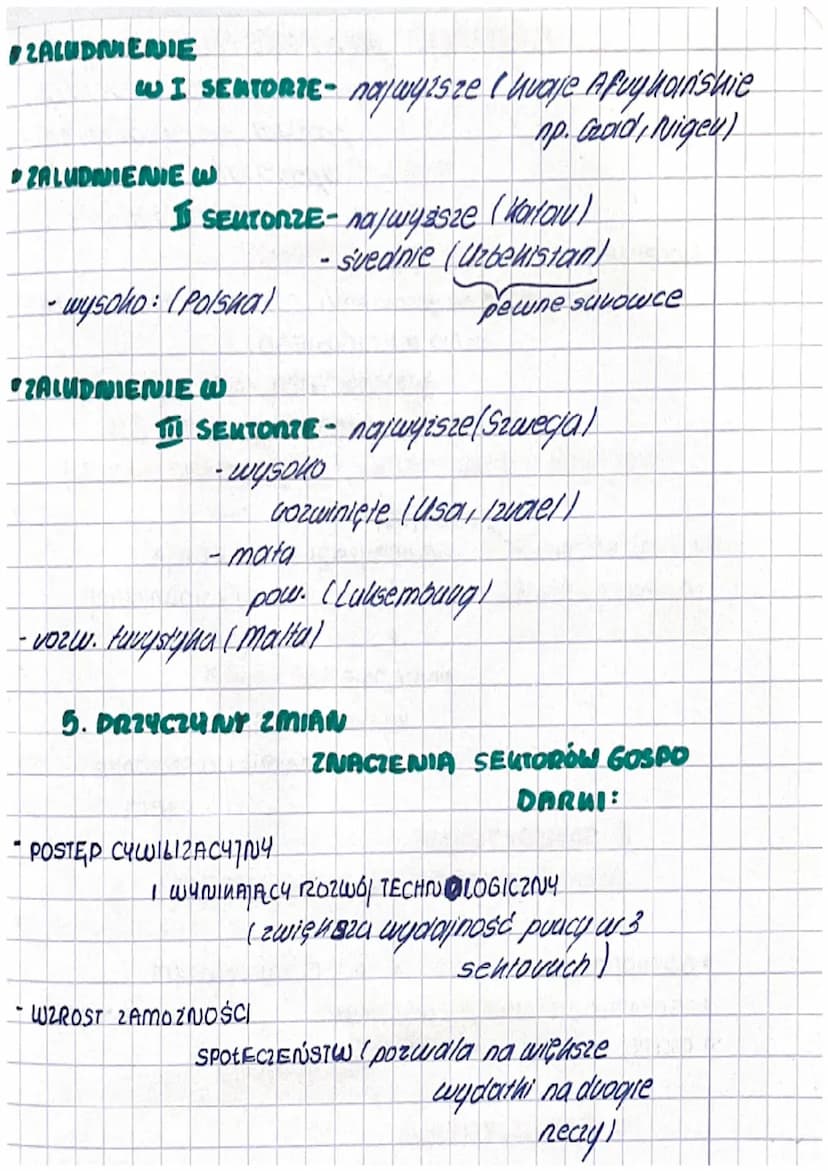 • ZALUDNIENIE
W I SEKTORZE- najwyższe (kraje Afrykańskie
np. Czad, Niger)
• ZALUDNIENIE W
II SEKTORZE- najwyższe (Katar)
- średnie (Uzbekistan)
- wysoko: (Polska)
pewne surowce
• ZALUDNIENIE W
III SEKTORZE- najwyższe (Szwecja)
- wysoko
rozwinięte (Usa, Izrael)
- mała
pow. (Luksemburg)
- rozw. turystyka (Malta)
5. PRZYCZYNY ZMIAN
ZNACZENIA SEKTORÓW GOSPO
DARKI:
- POSTĘP CYWILIZACYJNY
I WYNIKAJĄCY ROZWÓJ TECHNOLOGICZNY
(zwiększa wydajność pracy w 3
sektorach)
- WZROST ZAMOŻNOŚCI
SPOŁECZEŃSTW (pozwala na większe
wydatki na drogie
rzeczy)